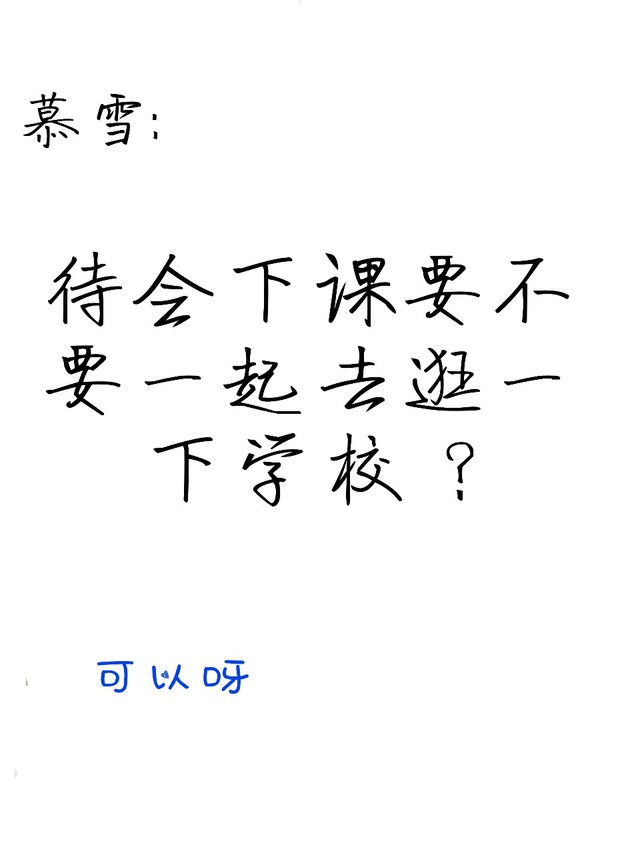 慕雪:
待会下课要不
要一起去逛一
下学校?
可以呀